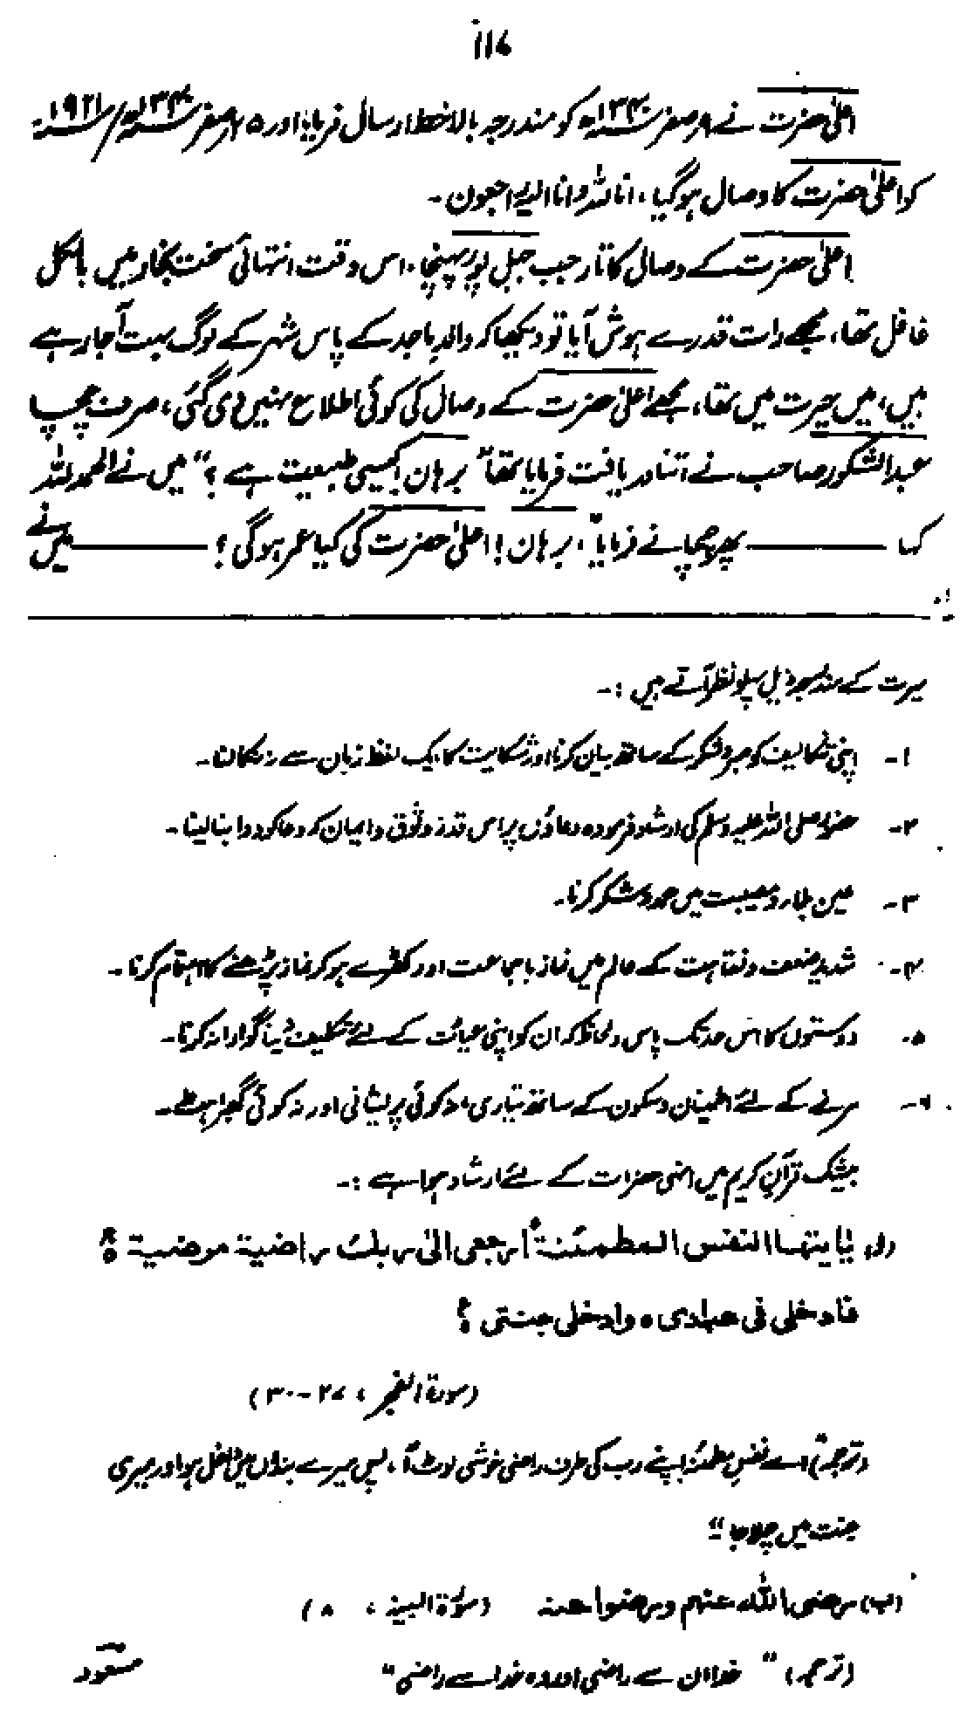 ۱۱۷
اعلیٰ حضرت نے ۸ صفر ۱۳۴۰ھ کو مندرجہ بالا خط ارسال فرمایا اور ۲۵ صفر ۱۳۴۰ھ/ ۱۹۲۱ء
کو اعلیٰ حضرت کا وصال ہوگیا، انا للہ وانا الیہ راجعون۔
اعلیٰ حضرت کے وصال کا تار جب جبل پور پہنچا، اس وقت انتہائی سخت بخار میں بالکل
غافل تھا، مجھے رات قدرے ہوش آیا تو دیکھا کہ والد ماجد کے پاس شہر کے لوگ بہت آجا رہے
ہیں، میں حیرت میں تھا، مجھے اعلیٰ حضرت کے وصال کی کوئی اطلاع نہیں دی گئی، صرف چچا
عبدالشکور صاحب نے اتنا دریافت فرمایا تھا "برہان! کیسی طبیعت ہے؟" میں نے الحمد للہ
کہا ——— پھر چچا نے فرمایا "، برہان! اعلیٰ حضرت کی کیا عمر ہوگی؟ ——— میں نے
سیرت کے مندرجہ ذیل پہلو نظر آتے ہیں :۔
۱۔ اپنی تکالیف کو صبر و شکر کے ساتھ بیان کرنا اور شکایت کا ایک لفظ زبان سے نہ نکالنا۔
۲۔ حضور صلی اللہ علیہ وسلم کی ارشاد فرمودہ دعاؤں پر اس قدر وثوق و ایمان کہ دعا کو دوا بنا لینا۔
۳۔ عین بلاء و مصیبت میں حمد و شکر کرنا۔
۴۔ شدید ضعف و نقاہت کے عالم میں نماز باجماعت اور کھڑے ہو کر نماز پڑھنے کا اہتمام کرنا۔
۵۔ دوستوں کا اس حد تک پاس و لحاظ کہ ان کو اپنی عیادت کے لئے تکلیف دینا گوارا نہ کرنا۔
۶۔ مرنے کے لئے اطمینان و سکون کے ساتھ تیاری، نہ کوئی پریشانی اور نہ کوئی گھبراہٹ۔
بیشک قرآن کریم میں انہی حضرات کے لئے ارشاد ہوا ہے :۔
(ا) یٰایتھا النفس المطمئنۃ ارجعی الیٰ ربک راضیۃ مرضیۃ ہ
فادخلی فی عبادی ہ وادخلی جنتی ہ
(سورۃ الفجر، ۲۷-۳۰)
(ترجمہ) "اے نفس مطمئنہ اپنے رب کی طرف راضی خوشی لوٹ آ، پس میرے بندوں میں داخل ہو اور میری
جنت میں چلا جا"
(ب) رضی اللہ عنھم ورضوا عنہ (سورۃ البینہ، ۸)
(ترجمہ) "خدا ان سے راضی اور وہ خدا سے راضی"
مسعود